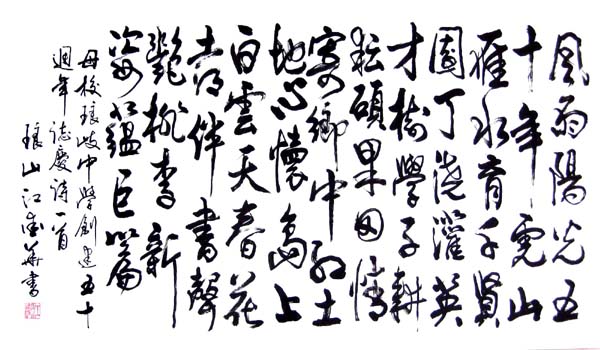 風雨陽光五
十年虎山
雁水育千賢
園丁澆灌英
才樹學子耕
耘碩果田情
寄鄉中紅土
地心懷島上
白雲天春花
喜伴書聲
艷桃李新
姿蘊巨篇
母校琅岐中學創建五十
週年誌慶詩一首
琅山江華書